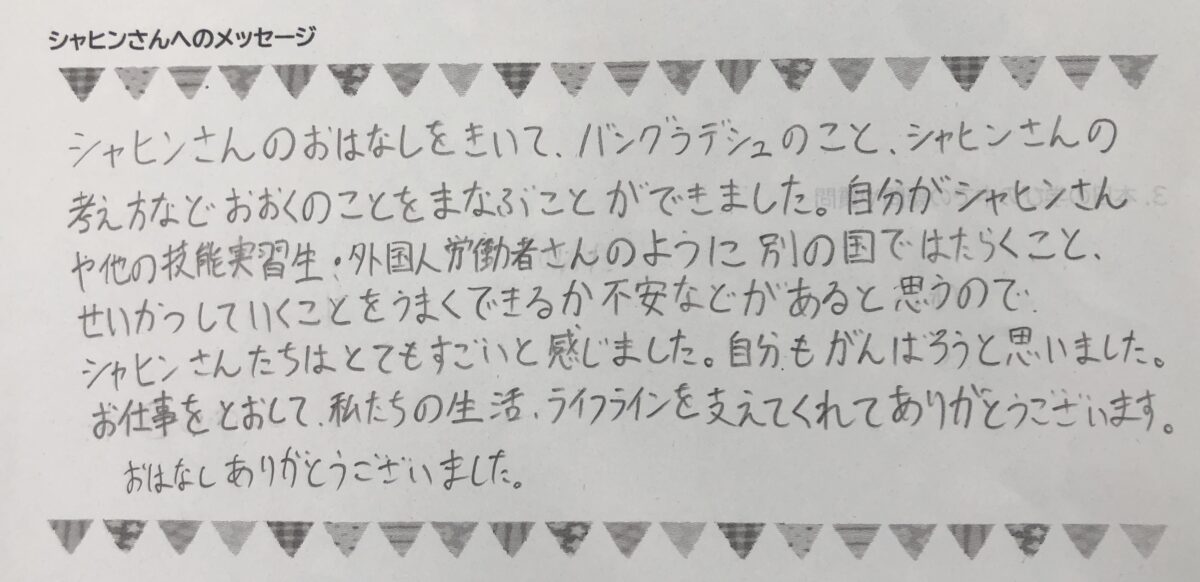 シャヒンさんへのメッセージ
シャヒンさんのおはなしをきいて、バングラデシュのこと、シャヒンさんの
考え方などおおくのことをまなぶことができました。自分がシャヒンさん
や他の技能実習生・外国人労働者さんのように別の国ではたらくこと、
せいかつしていくことをうまくできるか不安などがあると思うので
シャヒンさんたちはとてもすごいと感じました。自分もがんばろうと思いました。
お仕事をとおして、私たちの生活、ライフラインを支えてくれてありがとうございます。
おはなしありがとうございました。